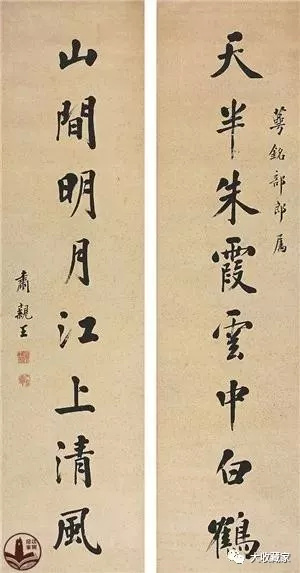 蕚銘部郎属
天半朱霞雲中白鶴
山間明月江上清風
肅親王
大收藏家